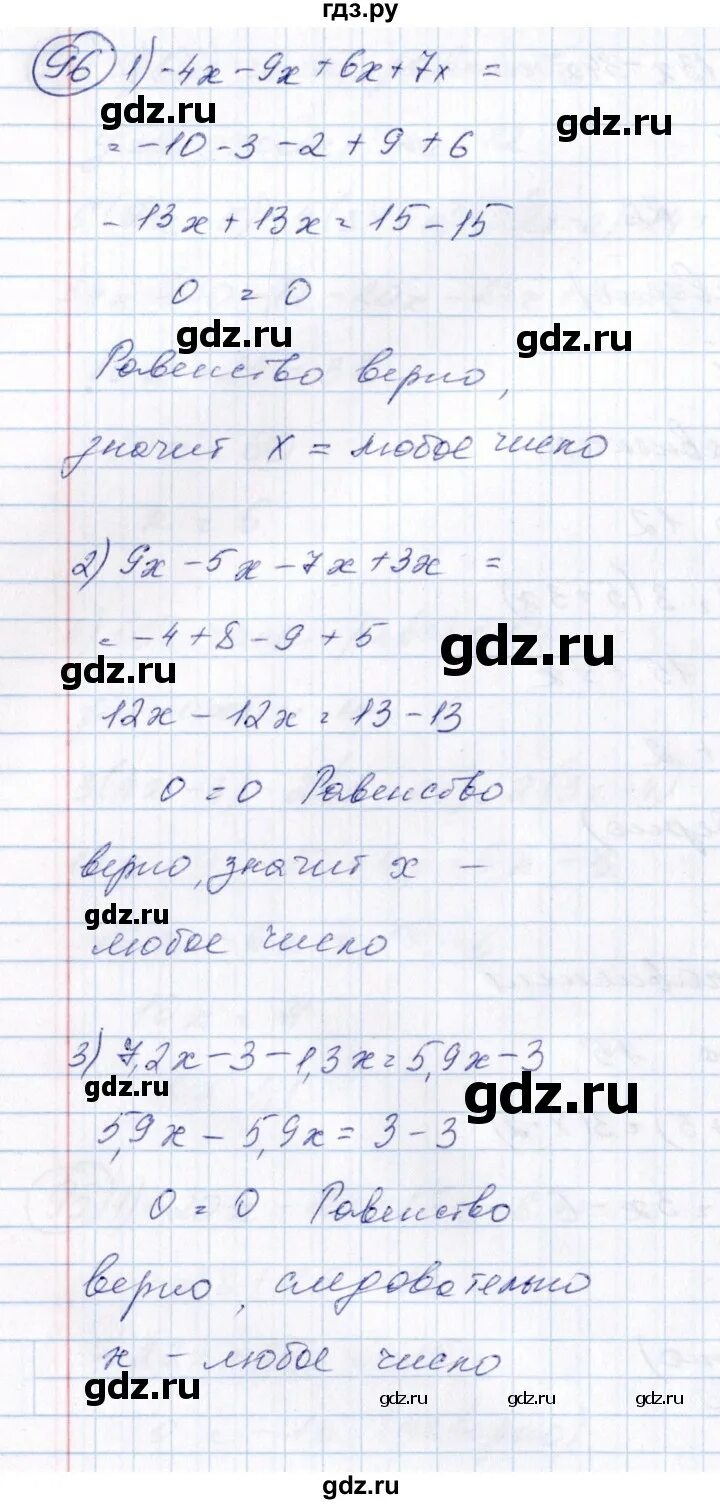 гдз.ру
96 1) -4x - 9x + 6x + 7x =
gdz.ru
gdz.ru
= -10 - 3 - 2 + 9 + 6
-13x + 13x = 15 - 15
0 = 0
gdz.ru
gdz.ru
Равенство верно,
значит x = любое число
2) 9x - 5x - 7x + 3x =
= -4 + 8 - 9 + 5
gdz.ru
gdz.ru
12x - 12x = 13 - 13
0 = 0 Равенство
верно, значит x -
gdz.ru
любое число
3) 7,2x - 3 - 1,3x = 5,9x - 3
gdz.ru
5,9x - 5,9x = 3 - 3
0 = 0 Равенство
верно, следовательно
x - любое число
gdz.ru
gdz.ru
gdz.ru
gdz.ru